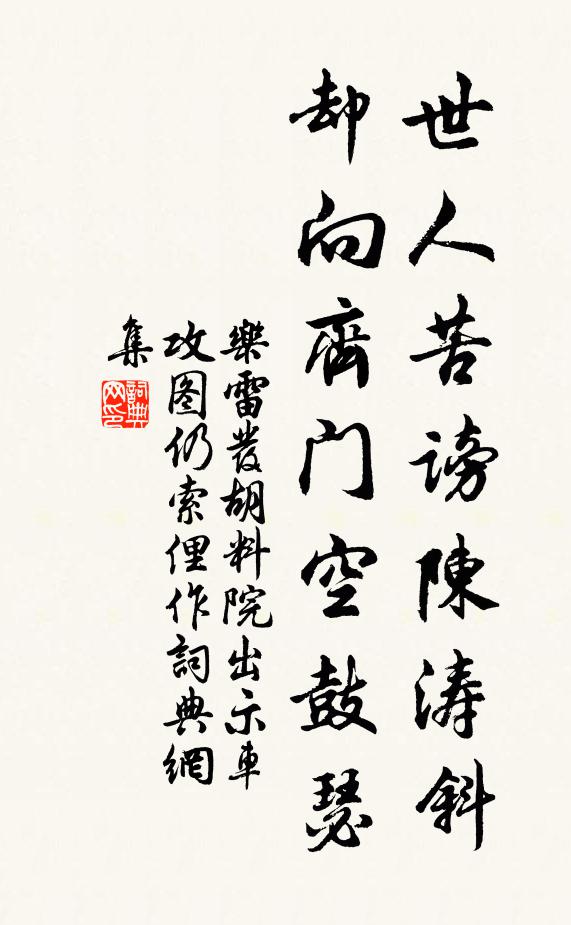 世人苦謗陳濤斜
却向齊門空鼓瑟
樂雷發胡料院出示車
攻图仍索俚作詞典網
集
詞典
网印